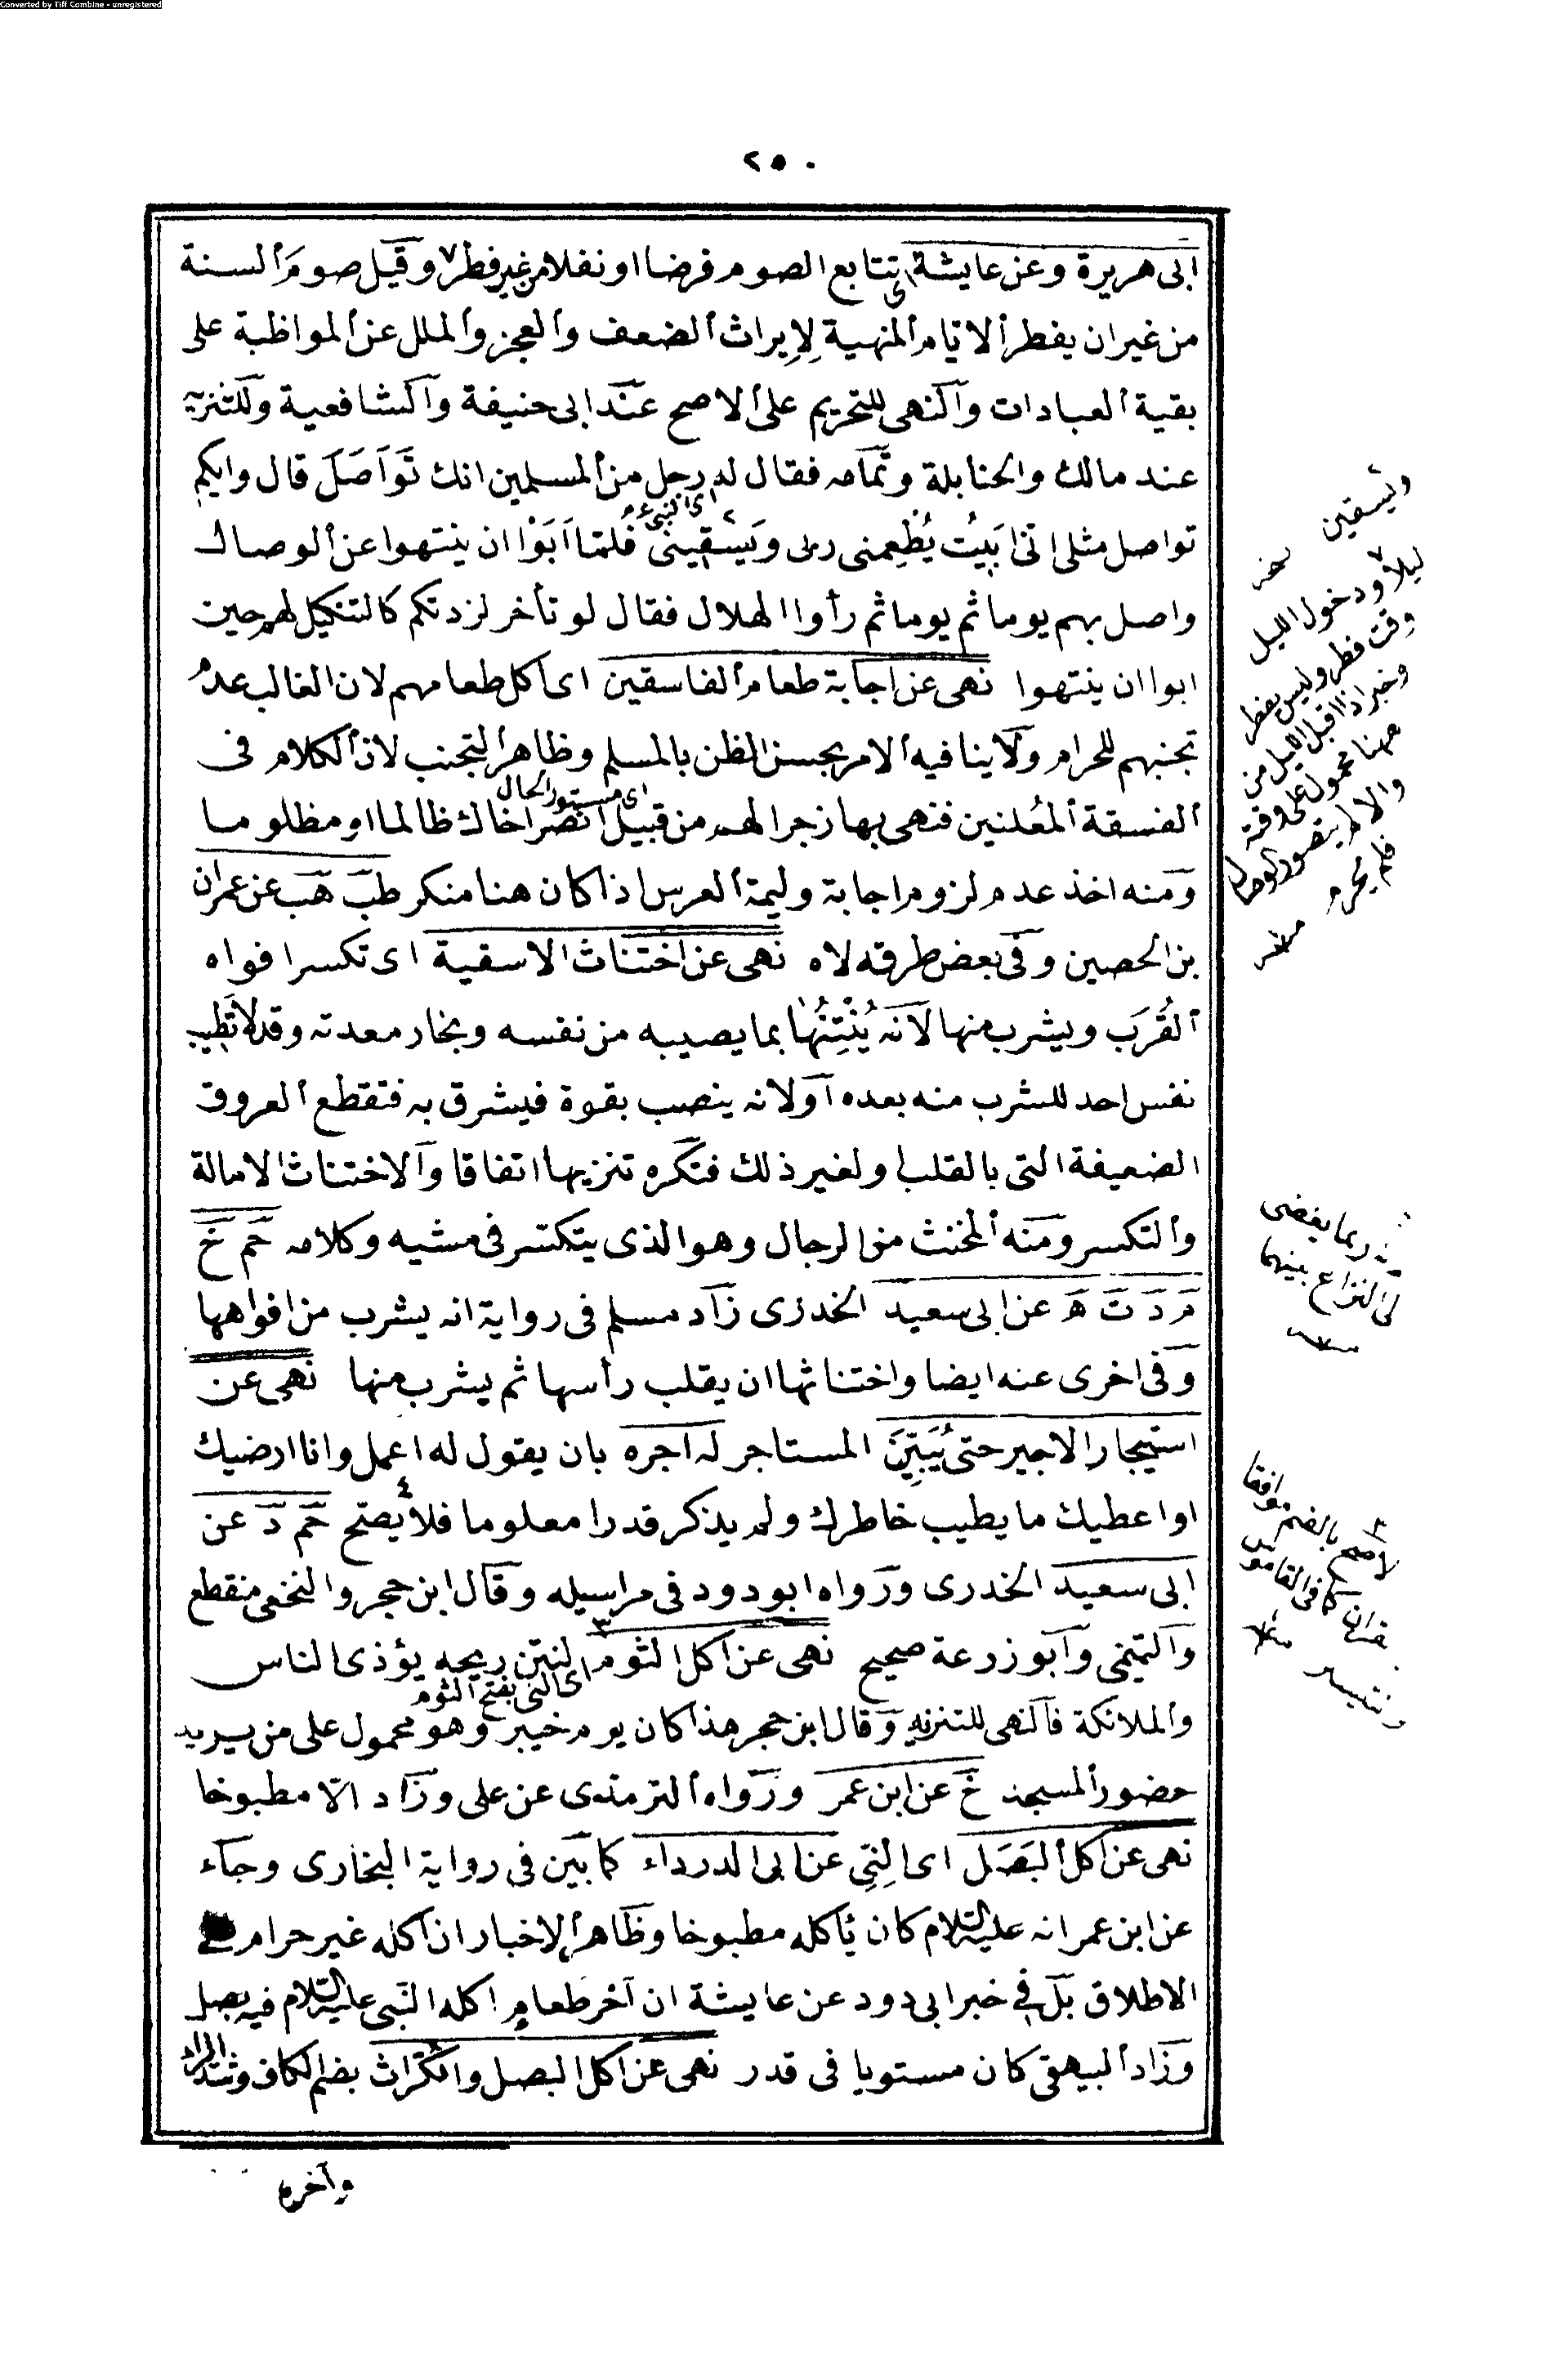 Converted by Tiff Combine - unregistered
٢٥٠
ابى هريرة وعن عايشة اى تتابع الصوم فرضا او نفلا من غير فطر ٧ وقيل صوم السنة
من غير ان يفطر الايام المنهية لايراث الضعف والعجز والملل عن المواظبة على
بقية العبادات والنهى للتحريم على الاصح عند ابى حنيفة والشافعية وللتنزيه
عند مالك والحنابلة وتمامه فقال له رجل من المسلمين انك تواصل قال وايكم
اى النبى عم ٢
تواصل مثلى انى ابيت يطعمنى ربى ويسقينى فلما ابوا ان ينتهوا عن الوصال
واصل بهم يوما ثم يوما ثم رأوا الهلال فقال لو تأخر لزدتكم كالتنكيل لهم حين
ابوا ان ينتهوا نهى عن اجابة طعام الفاسقين اى اكل طعامهم لان الغالب عدم
تجنبهم للحرام ولا ينافيه الامر بحسن الظن بالمسلم وظاهر التجنب لان الكلام فى
اى مستور الحال
الفسقة المعلنين فنهى بها زجرا لهم من قبيل انصر اخاك ظالما او مظلوما
ومنه اخذ عدم لزوم اجابة وليمة العرس اذا كان هنا منكر طب هب عن عمران
بن الحصين وفى بعض طرقه لاه نهى عن اختناث الاسقية اى تكسر افواه
القرب ويشرب منها لانه ينتنها بما يصيبه من نفسه وبخار معدته وقد لا تطيب
نفس احد للشرب منه بعده او لانه ينصب بقوة فيشرق به فتقطع العروق
الضعيفة التى بالقلب او لغير ذلك فتكره تنزيها اتفاقا والاختناث الامالة
والتكسر ومنه المخنث من الرجال وهو الذى يتكسر فى مشيه وكلامه حم خ
م د ت ه عن ابى سعيد الخدرى زاد مسلم فى رواية انه يشرب من افواهها
وفى اخرى عنه ايضا واختناثها ان يقلب رأسها ثم يشرب منها نهى عن
استيجار الاجير حتى يبين المستاجر له اجره بان يقول له اعمل وانا ارضيك
او اعطيك ما يطيب خاطرك ولم يذكر قدرا معلوما فلا يصح ٤ حم د عن
ابى سعيد الخدرى ورواه ابو دود فى مراسيله وقال ابن حجر والنخعى منقطع
والتيمى وابو زرعة صحيح نهى عن اكل الثوم ٣ لنتن ريحه يؤذى الناس
اى النى بفتح الثوم
والملائكة فالنهى للتنزيه وقال ابن حجر هذا كان يوم خيبر وهو محمول على من يريد
حضور المسجد خ عن ابن عمر ورواه الترمذى عن على وزاد الا مطبوخا
نهى عن اكل البصل اى النى عن ابى الدرداء كما بين فى رواية البخارى وجاء
عن ابن عمر انه عليه السلام كان يأكله مطبوخا وظاهر الاخبار ان اكله غير حرام على
الاطلاق بل فى خبر ابى دود عن عايشة ان آخر طعام اكله النبى عليه السلام فيه بصل
وزاد البيهقى كان مستويا فى قدر نهى عن اكل البصل والكراث بضم الكاف وشد الراء
وآخره
ويسقين
نسخه
ليلا ودخول الليل ٧
وقت فطر وليس بفطر
وخبر اذا اقبل الليل من
ههنا محمول على وقته
والا لم يتصور الوصال
فلم يحرم
منه
ربما يفضى
الى النزاع بينهما
منه
بالضم موافقا
كما فى القاموس
منه